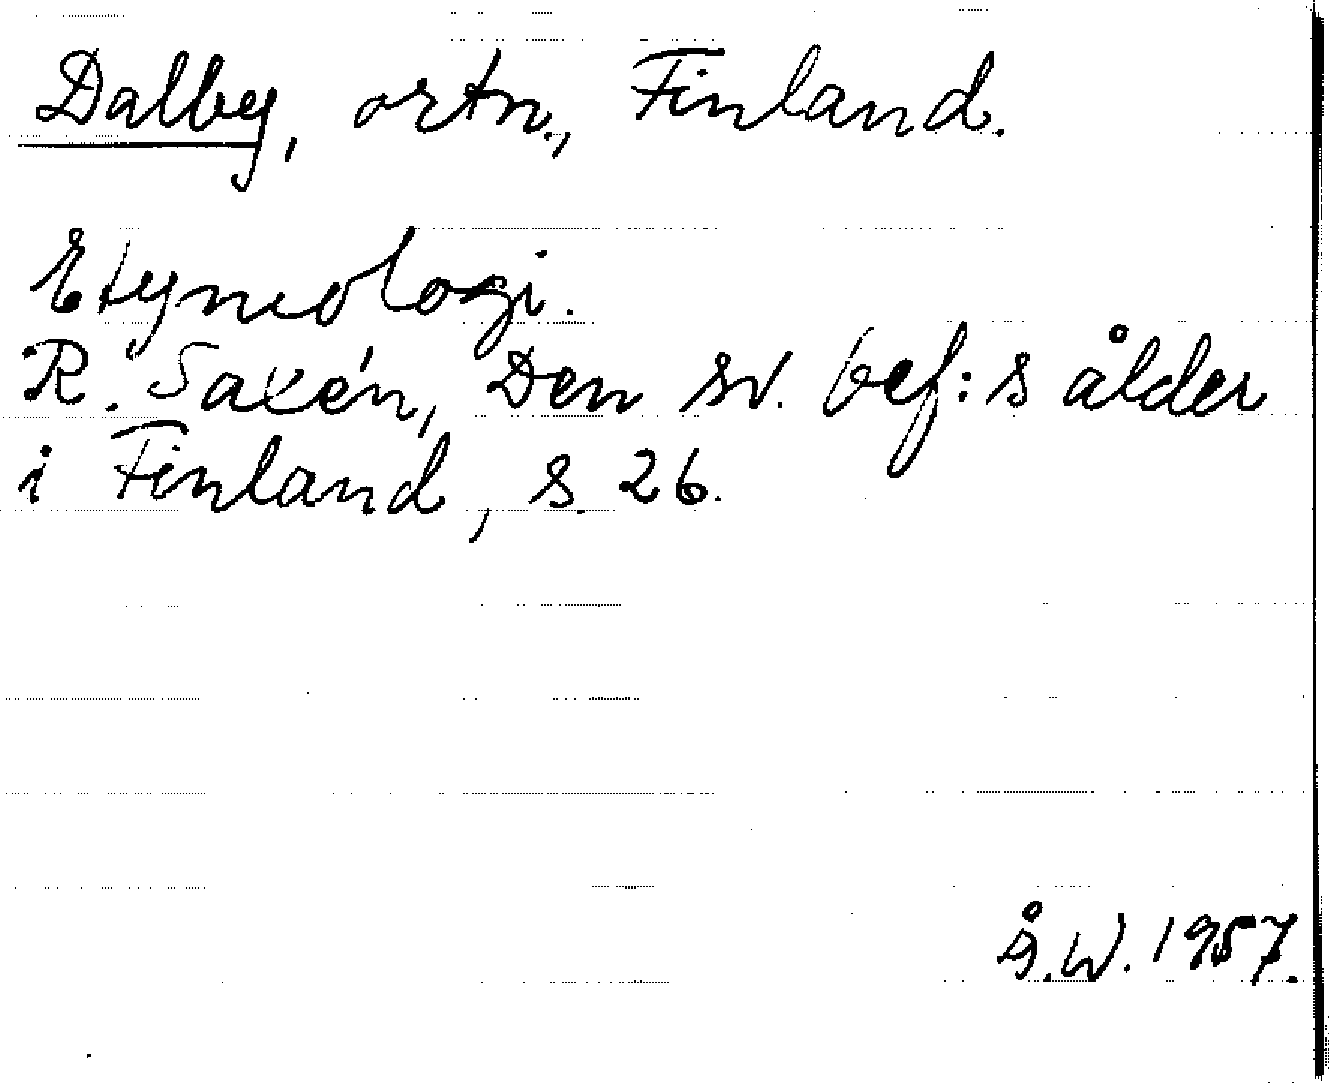 Dalby, ortn., Finland.
Etymologi.
R. Saxén, Den sv. bef:s ålder
i Finland, s. 26.
Å.W. 1957.